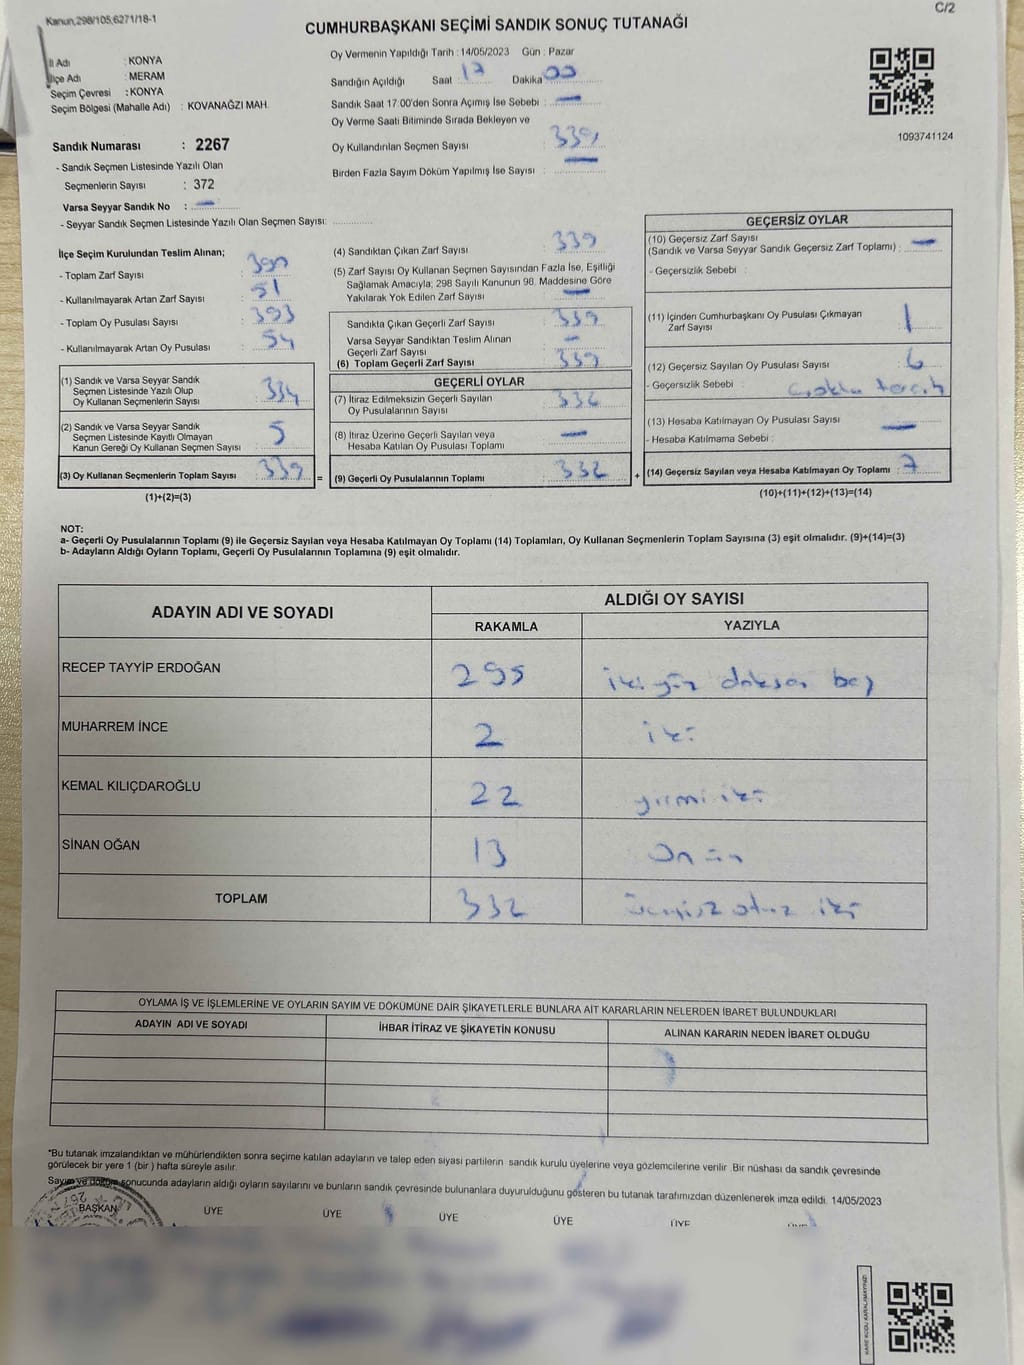 Kanun,298/105,6271/18-1
C/2
CUMHURBAŞKANI SEÇİMİ SANDIK SONUÇ TUTANAĞI
İl Adı : KONYA
İlçe Adı : MERAM
Seçim Çevresi : KONYA
Seçim Bölgesi (Mahalle Adı) : KOVANAĞZI MAH.
Oy Vermenin Yapıldığı Tarih : 14/05/2023 Gün : Pazar
Sandığın Açıldığı Saat : 17 Dakika 00
Sandık Saat 17.00'den Sonra Açımış İse Sebebi : —
Oy Verme Saati Bitiminde Sırada Bekleyen ve
Oy Kullandırılan Seçmen Sayısı : 339
Birden Fazla Sayım Döküm Yapılmış İse Sayısı : —
1093741124
Sandık Numarası : 2267
- Sandık Seçmen Listesinde Yazılı Olan
Seçmenlerin Sayısı : 372
Varsa Seyyar Sandık No : —
- Seyyar Sandık Seçmen Listesinde Yazılı Olan Seçmen Sayısı:
İlçe Seçim Kurulundan Teslim Alınan;
- Toplam Zarf Sayısı : 390
- Kullanılmayarak Artan Zarf Sayısı : 51
- Toplam Oy Pusulası Sayısı : 393
- Kullanılmayarak Artan Oy Pusulası : 54
(1) Sandık ve Varsa Seyyar Sandık
Seçmen Listesinde Yazılı Olup
Oy Kullanan Seçmenlerin Sayısı : 334
(2) Sandık ve Varsa Seyyar Sandık
Seçmen Listesinde Kayıtlı Olmayan
Kanun Gereği Oy Kullanan Seçmen Sayısı : 5
(3) Oy Kullanan Seçmenlerin Toplam Sayısı : 339
(1)+(2)=(3)
(4) Sandıktan Çıkan Zarf Sayısı : 339
(5) Zarf Sayısı Oy Kullanan Seçmen Sayısından Fazla İse, Eşitliği
Sağlamak Amacıyla; 298 Sayılı Kanunun 98. Maddesine Göre
Yakılarak Yok Edilen Zarf Sayısı : —
Sandıkta Çıkan Geçerli Zarf Sayısı : 339
Varsa Seyyar Sandıktan Teslim Alınan
Geçerli Zarf Sayısı : —
(6) Toplam Geçerli Zarf Sayısı : 339
GEÇERLİ OYLAR
(7) İtiraz Edilmeksizin Geçerli Sayılan
Oy Pusulalarının Sayısı : 332
(8) İtiraz Üzerine Geçerli Sayılan veya
Hesaba Katılan Oy Pusulası Toplamı : —
= (9) Geçerli Oy Pusulalarının Toplamı : 332 +
GEÇERSİZ OYLAR
(10) Geçersiz Zarf Sayısı
(Sandık ve Varsa Seyyar Sandık Geçersiz Zarf Toplamı) : —
- Geçersizlik Sebebi :
(11) İçinden Cumhurbaşkanı Oy Pusulası Çıkmayan
Zarf Sayısı : 1
(12) Geçersiz Sayılan Oy Pusulası Sayısı : 6
- Geçersizlik Sebebi : Çoklu tercih
(13) Hesaba Katılmayan Oy Pusulası Sayısı : —
- Hesaba Katılmama Sebebi :
(14) Geçersiz Sayılan veya Hesaba Katılmayan Oy Toplamı : 7
(10)+(11)+(12)+(13)=(14)
NOT:
a- Geçerli Oy Pusulalarının Toplamı (9) ile Geçersiz Sayılan veya Hesaba Katılmayan Oy Toplamı (14) Toplamları, Oy Kullanan Seçmenlerin Toplam Sayısına (3) eşit olmalıdır. (9)+(14)=(3)
b- Adayların Aldığı Oyların Toplamı, Geçerli Oy Pusulalarının Toplamına (9) eşit olmalıdır.
ADAYIN ADI VE SOYADI ALDIĞI OY SAYISI
RAKAMLA YAZIYLA
RECEP TAYYİP ERDOĞAN 295 ikiyüz doksan beş
MUHARREM İNCE 2 iki
KEMAL KILIÇDAROĞLU 22 yirmi iki
SİNAN OĞAN 13 on üç
TOPLAM 332 üçyüz otuz iki
OYLAMA İŞ VE İŞLEMLERİNE VE OYLARIN SAYIM VE DÖKÜMÜNE DAİR ŞİKAYETLERLE BUNLARA AİT KARARLARIN NELERDEN İBARET BULUNDUKLARI
ADAYIN ADI VE SOYADI İHBAR İTİRAZ VE ŞİKAYETİN KONUSU ALINAN KARARIN NEDEN İBARET OLDUĞU
*Bu tutanak imzalandıktan ve mühürlendikten sonra seçime katılan adayların ve talep eden siyasi partilerin sandık kurulu üyelerine veya gözlemcilerine verilir. Bir nüshası da sandık çevresinde
görülecek bir yere 1 (bir ) hafta süreyle asılır.
Sayım ve döküm sonucunda adayların aldığı oyların sayılarını ve bunların sandık çevresinde bulunanlara duyurulduğunu gösteren bu tutanak tarafımızdan düzenlenerek imza edildi. 14/05/2023
BAŞKAN ÜYE ÜYE ÜYE ÜYE ÜYE ÜYE
KARE KODU KARALAMAYINIZ!